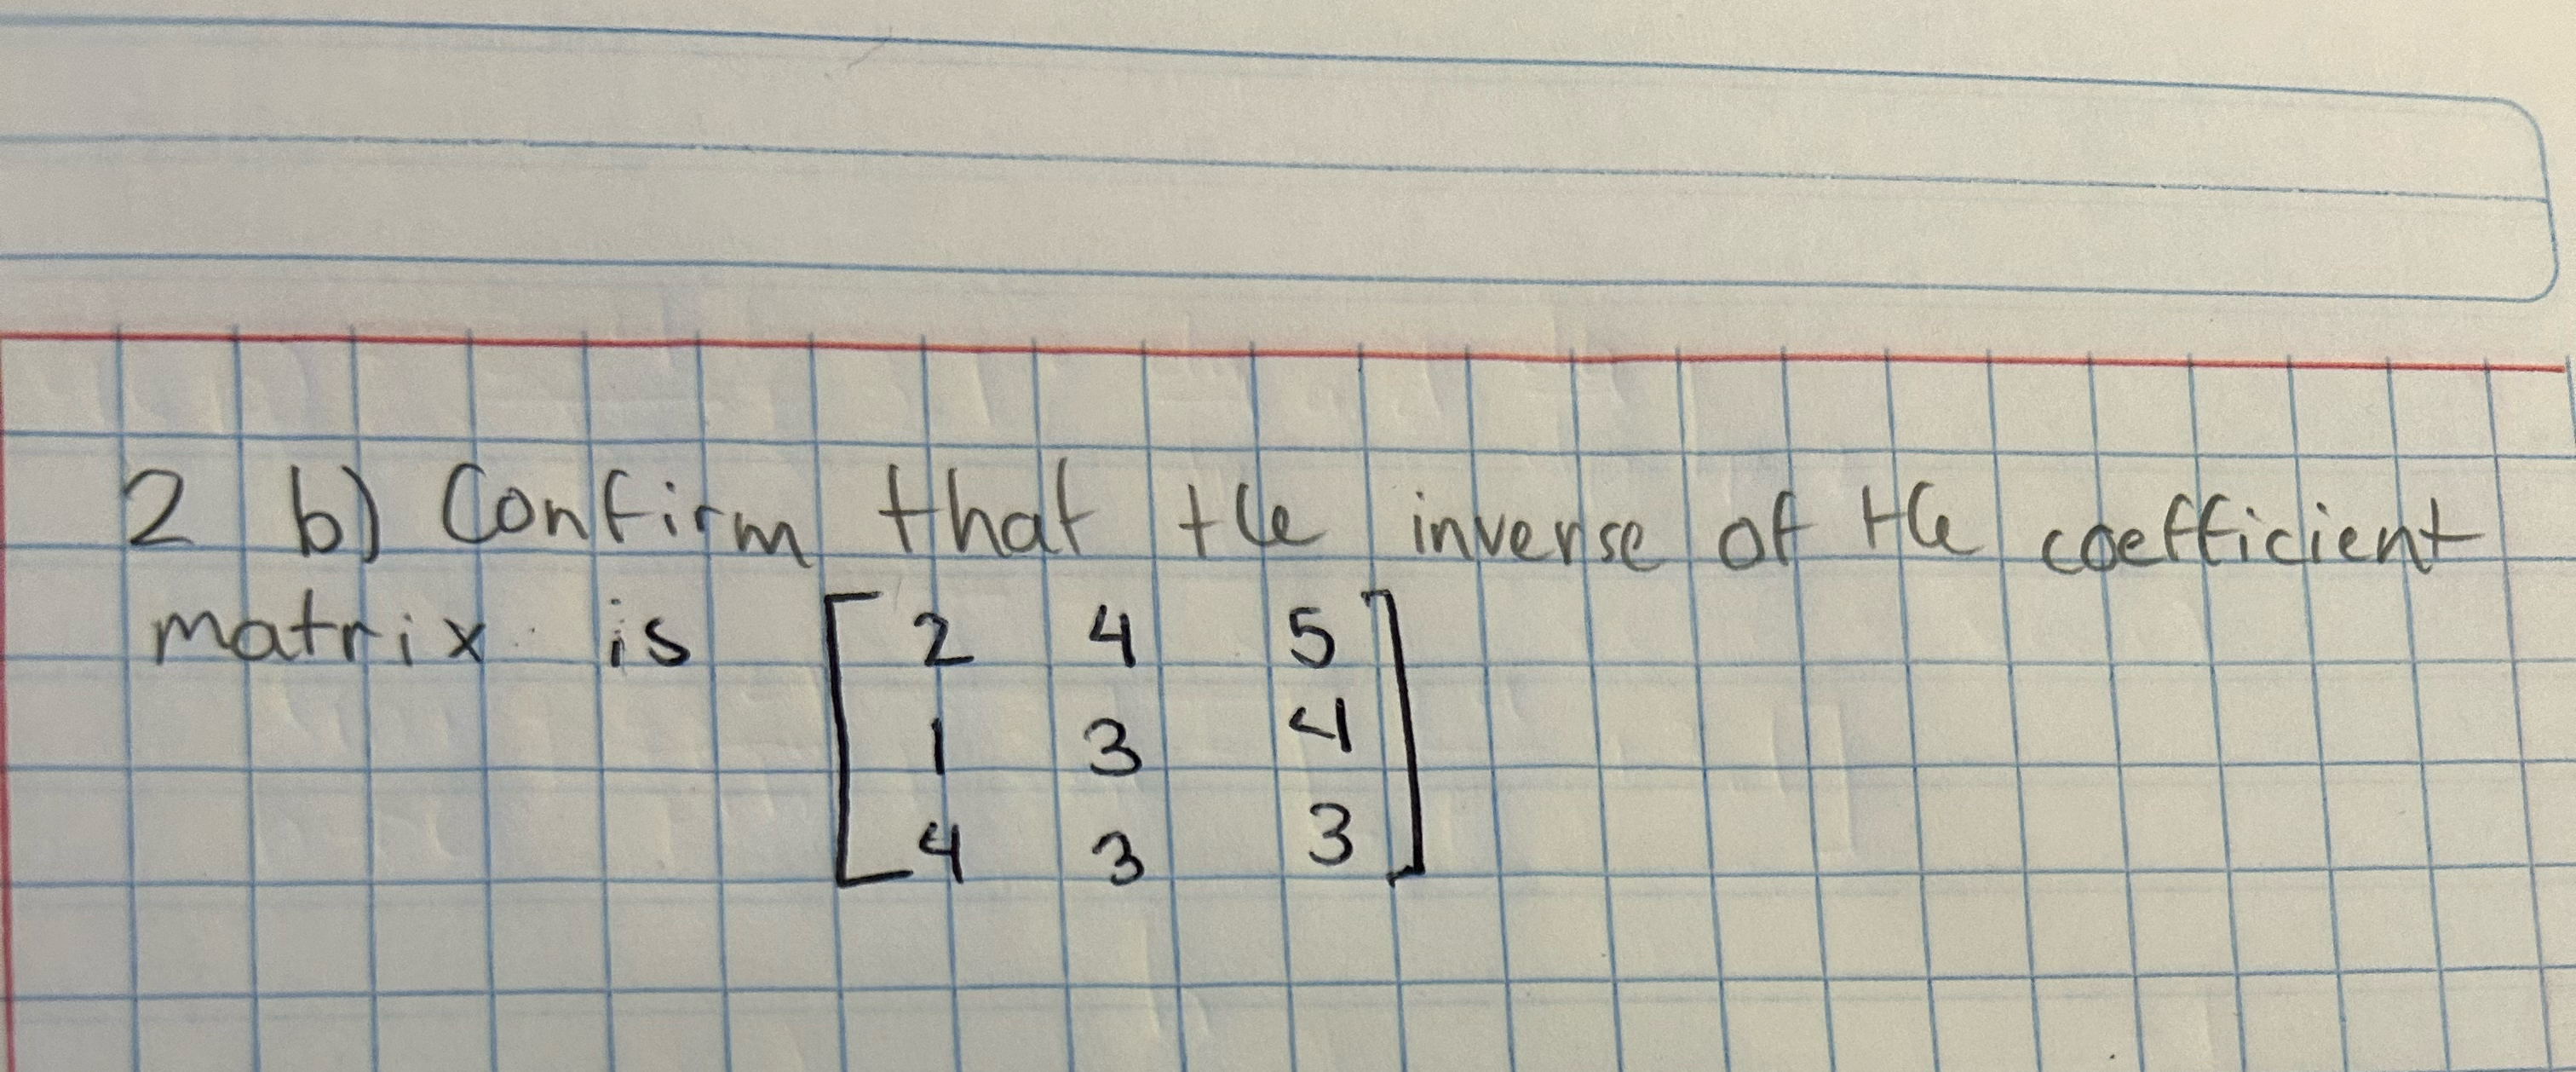 2 b) Confirm that the inverse of the coefficient
matrix is [2 4 5
1 3 4
4 3 3]